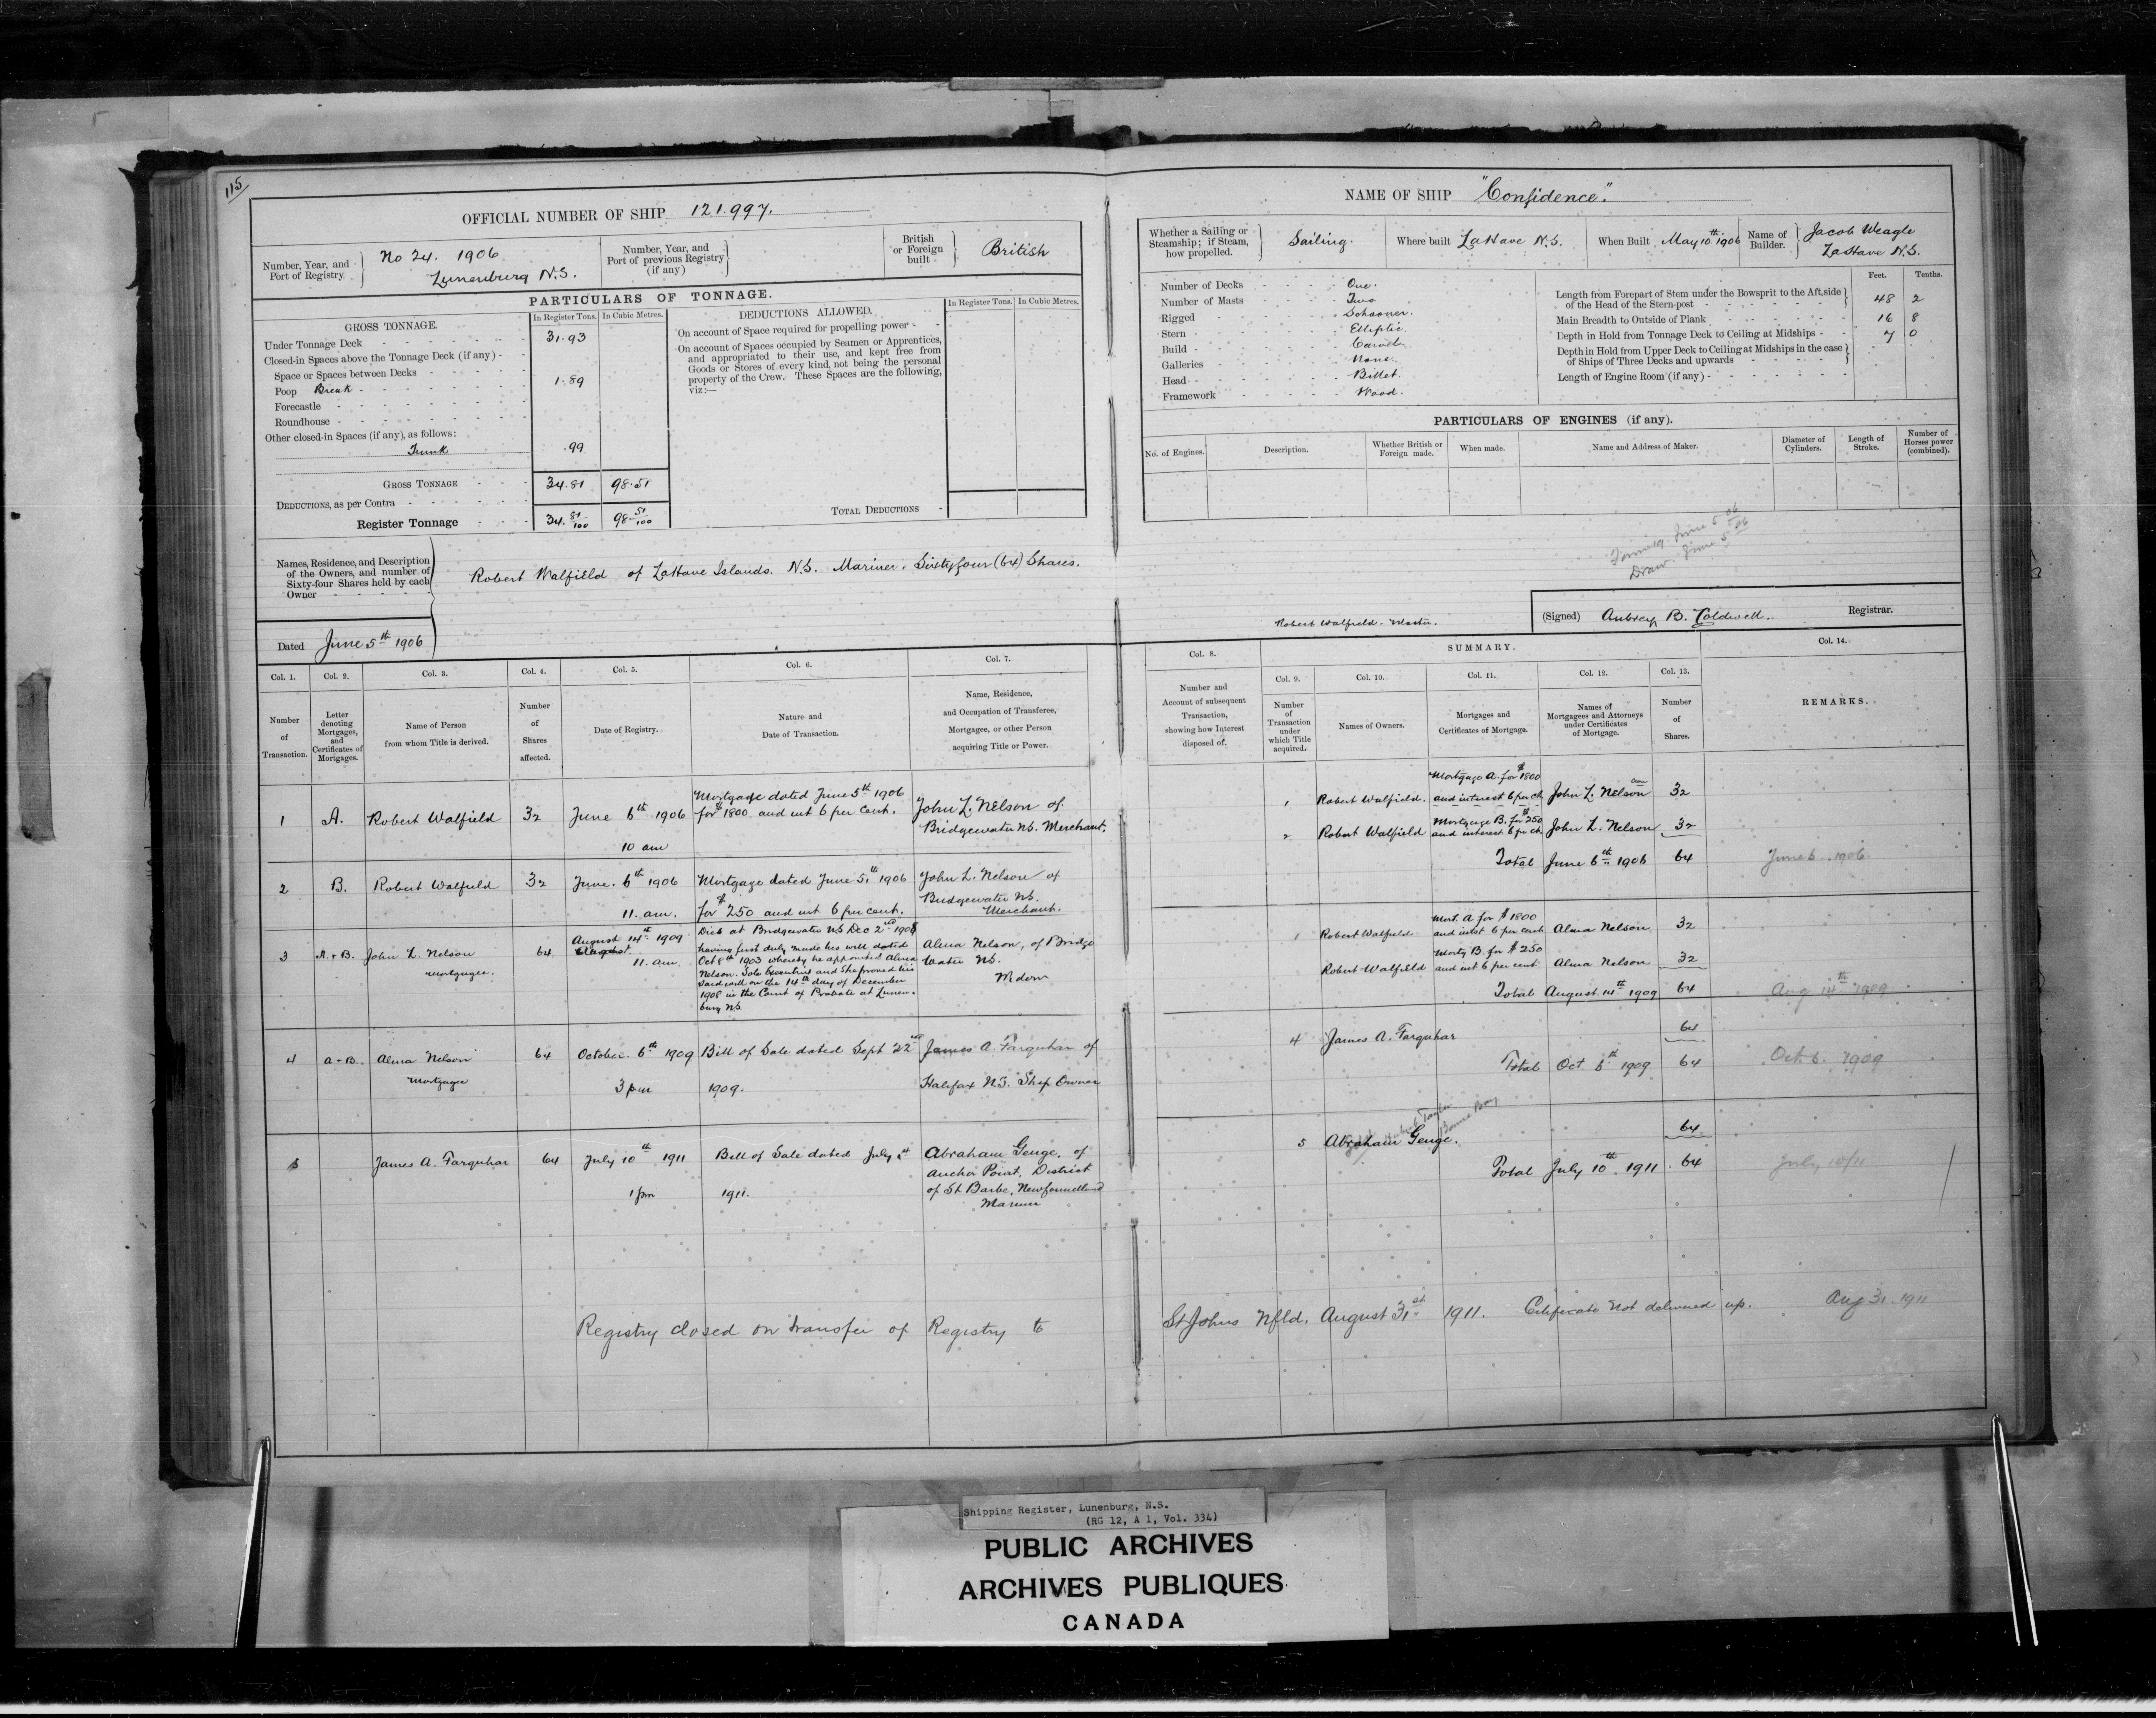 115
OFFICIAL NUMBER OF SHIP 121.997.
Number, Year, and Port of Registry
No 24. 1906
Lunenburg N.S.
Number, Year, and Port of previous Registry (if any)
British or Foreign built
British
PARTICULARS OF TONNAGE.
GROSS TONNAGE.
In Register Tons.
In Cubic Metres.
Under Tonnage Deck 31.93
Closed-in Spaces above the Tonnage Deck (if any) -
Space or Spaces between Decks
Poop Break 1.89
Forecastle
Roundhouse
Other closed-in Spaces (if any), as follows:
Trunk .99
GROSS TONNAGE 34.81 98.51
DEDUCTIONS, as per Contra
Register Tonnage 34.81/100 98-51/100
DEDUCTIONS ALLOWED.
In Register Tons.
In Cubic Metres.
On account of Space required for propelling power -
On account of Spaces occupied by Seamen or Apprentices,
and appropriated to their use, and kept free from
Goods or Stores of every kind, not being the personal
property of the Crew. These Spaces are the following,
viz:—
TOTAL DEDUCTIONS
Names, Residence, and Description
of the Owners, and number of
Sixty-four Shares held by each
Owner
Robert Walfield of LaHave Islands. N.S. Mariner. Sixtyfour (64) Shares.
Dated June 5th 1906
NAME OF SHIP "Confidence".
Whether a Sailing or Steamship; if Steam, how propelled.
Sailing.
Where built LaHave N.S.
When Built May 10th 1906
Name of Builder.
Jacob Weagle
LaHave N.S.
Number of Decks One.
Number of Masts Two
Rigged Schooner.
Stern Elliptic.
Build Carvel
Galleries None.
Head Billet.
Framework Wood.
Feet. Tenths.
Length from Forepart of Stem under the Bowsprit to the Aft side
of the Head of the Stern-post 48 2
Main Breadth to Outside of Plank 16 8
Depth in Hold from Tonnage Deck to Ceiling at Midships 7 0
Depth in Hold from Upper Deck to Ceiling at Midships in the case
of Ships of Three Decks and upwards
Length of Engine Room (if any)
PARTICULARS OF ENGINES (if any).
No. of Engines.
Description.
Whether British or Foreign made.
When made.
Name and Address of Maker.
Diameter of Cylinders.
Length of Stroke.
Number of Horses power (combined).
Form 19. June 5 06
Draw. June 5 06
Robert Walfield. Master.
(Signed) Aubrey B. Caldwell. Registrar.
Col. 1. Col. 2. Col. 3. Col. 4. Col. 5. Col. 6. Col. 7.
Number of Transaction.
Letter denoting Mortgages, and Certificates of Mortgages.
Name of Person from whom Title is derived.
Number of Shares affected.
Date of Registry.
Nature and Date of Transaction.
Name, Residence, and Occupation of Transferee, Mortgagee, or other Person acquiring Title or Power.
Col. 8.
Number and Account of subsequent Transaction, showing how Interest disposed of.
SUMMARY.
Col. 9. Col. 10. Col. 11. Col. 12. Col. 13. Col. 14.
Number of Transaction under which Title acquired.
Names of Owners.
Mortgages and Certificates of Mortgage.
Names of Mortgagees and Attorneys under Certificates of Mortgage.
Number of Shares.
REMARKS.
1 A. Robert Walfield 32 June 6th 1906
10 am
Mortgage dated June 5th 1906
for $1800 and int 6 per cent.
John L. Nelson of
Bridgewater NS. Merchant.
2 B. Robert Walfield 32 June. 6th 1906
11. am.
Mortgage dated June 5th 1906
for $250 and int 6 per cent.
John L. Nelson of
Bridgewater NS.
Merchant.
3 A. + B. John L. Nelson
mortgagee.
64 August 14th 1909
August
11. am.
Died at Bridgewater NS Dec 2nd 1908
having first duly made his will dated
Oct 8th 1903 whereby he appointed Alma
Nelson. Sole Executrix and She proved his
said will on the 14th day of December
1908 in the Court of Probate at Lunen-
burg NS
Alma Nelson, of Bridge
water NS.
Widow
4 A + B. Alma Nelson
Mortgagee
64 October. 6th 1909
3 pm
Bill of Sale dated Sept 22nd
1909.
James A. Farquhar of
Halifax N.S. Ship Owner
5 James A. Farquhar 64 July 10th 1911
1 pm
Bill of Sale dated July
1911.
Abraham Genge. of
Anchor Point. District
of St Barbe, Newfoundland
Mariner
1 Robert Walfield.
Mortgage A. for $1800
and interest 6 per ct.
John L. Nelson 32
2 Robert Walfield
Mortgage B. for $250
and interest 6 per ct.
John L. Nelson 32
Total June 6th 1906 64 June 6. 1906
1 Robert Walfield
Mort. A for $1800
and inst 6 per cent
Alma Nelson 32
Robert Walfield
Mortg B. for $250
and int 6 per cent
Alma Nelson 32
Total August 14th 1909 64 Aug 14th 1909
4 James A. Farquhar 64
Total Oct 6th 1909 64 Oct 6. 1909
Taylor
Bonne Bay
5 Abraham Genge. 64
Total July 10th 1911. 64 July 10/11
Registry closed on transfer of Registry to St Johns Nfld. August 31st 1911. Certificate not delivered up. Aug 31. 1911
Shipping Register, Lunenburg, N.S.
(RG 12, A 1, Vol. 334)
PUBLIC ARCHIVES
ARCHIVES PUBLIQUES
CANADA